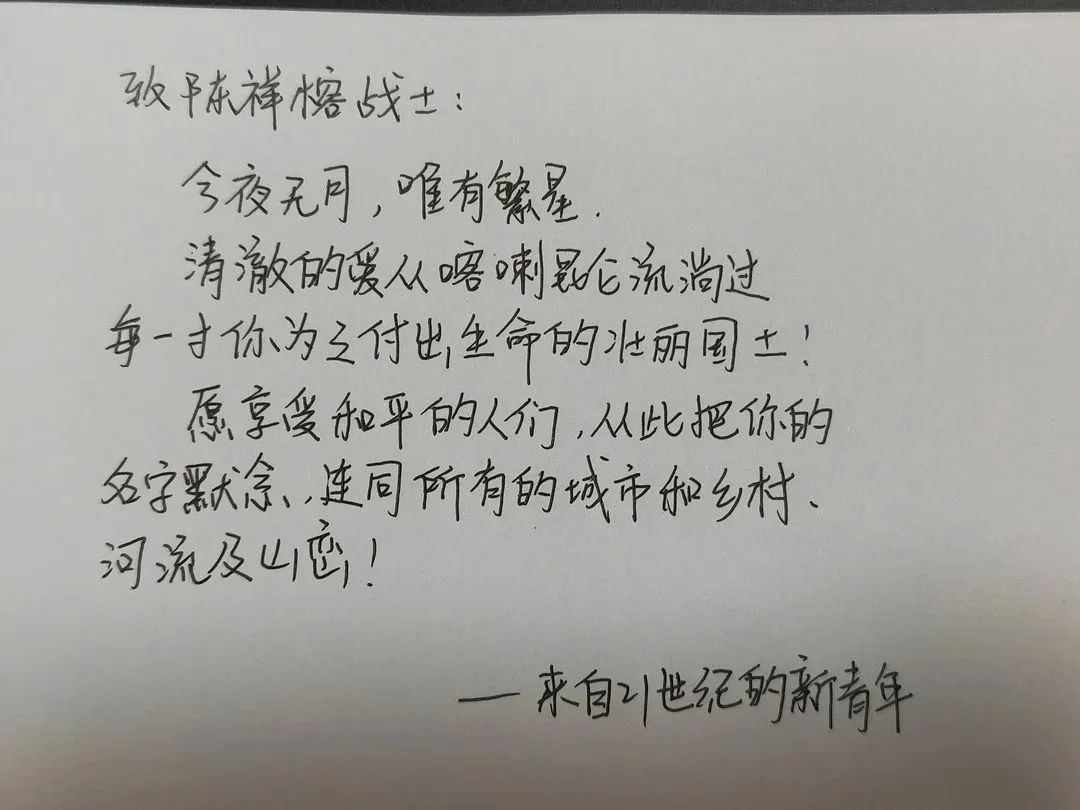 致陈祥榕战士：
今夜无月，唯有繁星．
清澈的爱从喀喇昆仑流淌过
每一寸你为之付出生命的壮丽国土！
愿享受和平的人们，从此把你的
名字默念，连同所有的城市和乡村、
河流及山峦！
——来自21世纪的新青年